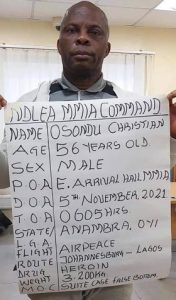 NDLEA MMIA COMMAND
NAME OSONDU CHRISTIAN
AGE 56 YEARS OLD.
SEX MALE
P.O.A E. ARRIVAL HALL, MMIA
D.O.A 5TH NOVEMBER, 2021
T.O.A 0605HRS.
STATE/L.G.A. ANAMBRA, OYI
FLIGHT AIRPEACE
ROUTE JOHANNESBURG - LAGOS
DRUG HEROIN
WEIGHT 3.200KG
M.O.C SUITE CASE FALSE BOTOM.